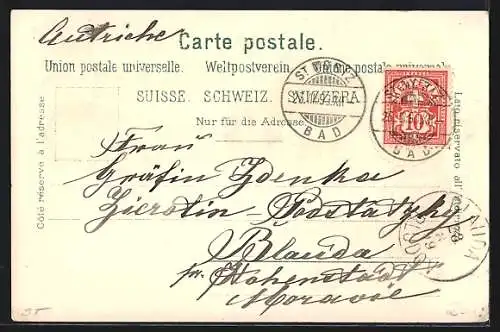 Autriche
Carte postale.
Union postale universelle. Weltpostverein. Unione postale universale
SUISSE. SCHWEIZ. SVIZZERA
Nur für die Adresse
Côté réservé à l'adresse
Lato riservato all'indirizzo
ST. MORITZ
BAD
10
BAD
Frau
Gräfin Zdenka
Zierotin-Podstatzky
Blauda
pr. Hohenstadt
Moravie